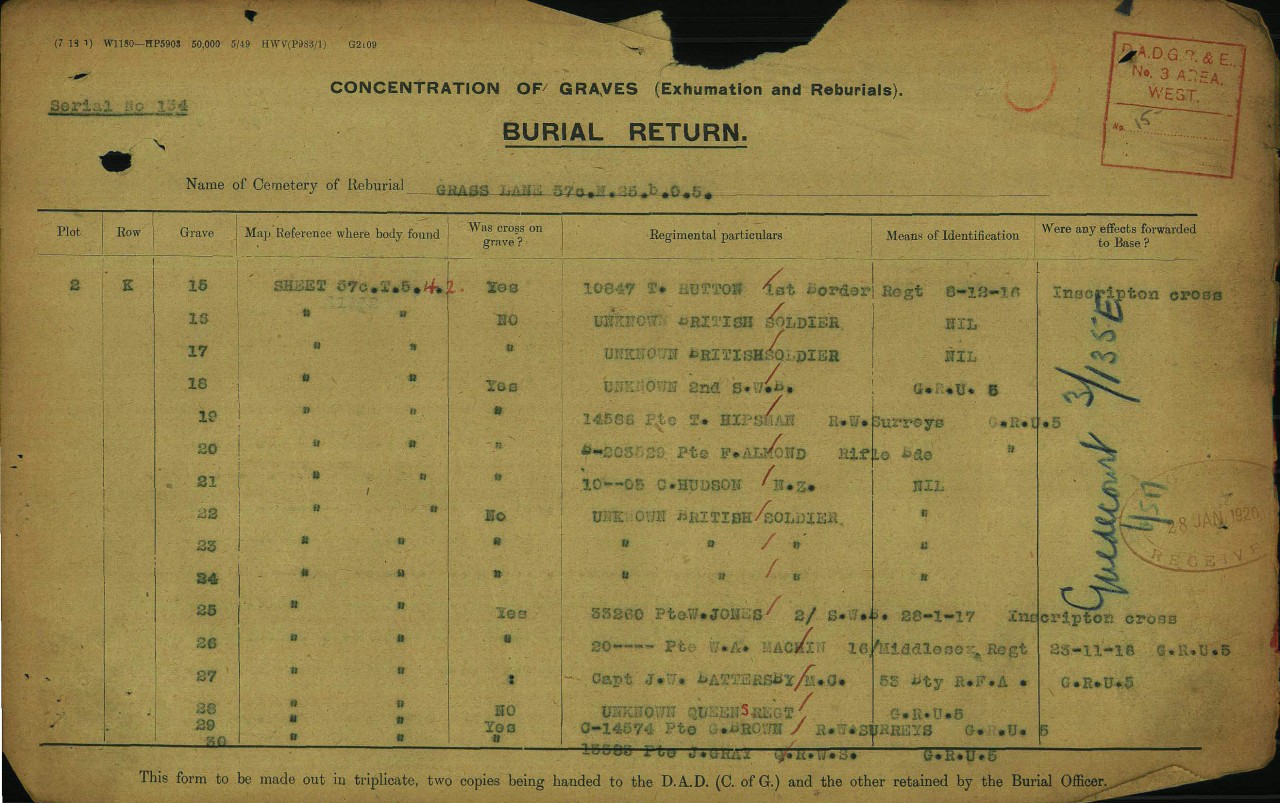 (7 18 1) W1180—HP5903 50,000 5/49 HWV(P983/1) G2109
D.A.D.G.R. & E.,
No. 3 AREA.
WEST.
No. 15
CONCENTRATION OF GRAVES (Exhumation and Reburials).
Serial No 134
BURIAL RETURN.
Name of Cemetery of Reburial GRASS LANE 57c.N.25.b.0.5.
Plot Row Grave Map Reference where body found Was cross on grave? Regimental particulars Means of Identification Were any effects forwarded to Base?
2 K 15 SHEET 57c.T.5.4.2. Yes 10847 T. HUTTON 1st Border Regt 8-12-16 Inscripton cross
16 " " NO UNKNOWN BRITISH SOLDIER NIL
17 " " " UNKNOWN BRITISHSOLDIER NIL
18 " " Yes UNKNOWN 2nd S.W.B. G.R.U. 5
19 " " " 14586 Pte T. HIPSMAN R.W.Surreys G.R.U.5
20 " " " S-203529 Pte F.ALMOND Rifle Bde "
21 " " " 10--05 C.HUDSON N.Z. NIL
22 " " No UNKNOWN BRITISH SOLDIER "
23 " " " " " " "
24 " " " " " " "
25 " " Yes 33260 PteW.JONES 2/ S.W.B. 28-1-17 Inscripton cross
26 " " " 20---- Pte W.A. MACHIN 16/Middlesex Regt 23-11-16 G.R.U.5
27 " " : Capt J.W. BATTERSBY M.C. 53 Bty R.F.A . G.R.U.5
28 " " NO UNKNOWN QUEENS REGT G.R.U.5
29 " " Yes G-14574 Pte G.BROWN R.W.SURREYS G.R.U. 5
30 " " " 13583 Pte J.GRAY Q.R.W.S. G.R.U.5
Guedecourt 3/135E
28 JAN 1920
RECEIVE
This form to be made out in triplicate, two copies being handed to the D.A.D. (C. of G.) and the other retained by the Burial Officer.